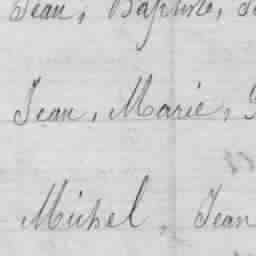 Jean, Baptiste,
Jean, Marie,
Michel, Jean